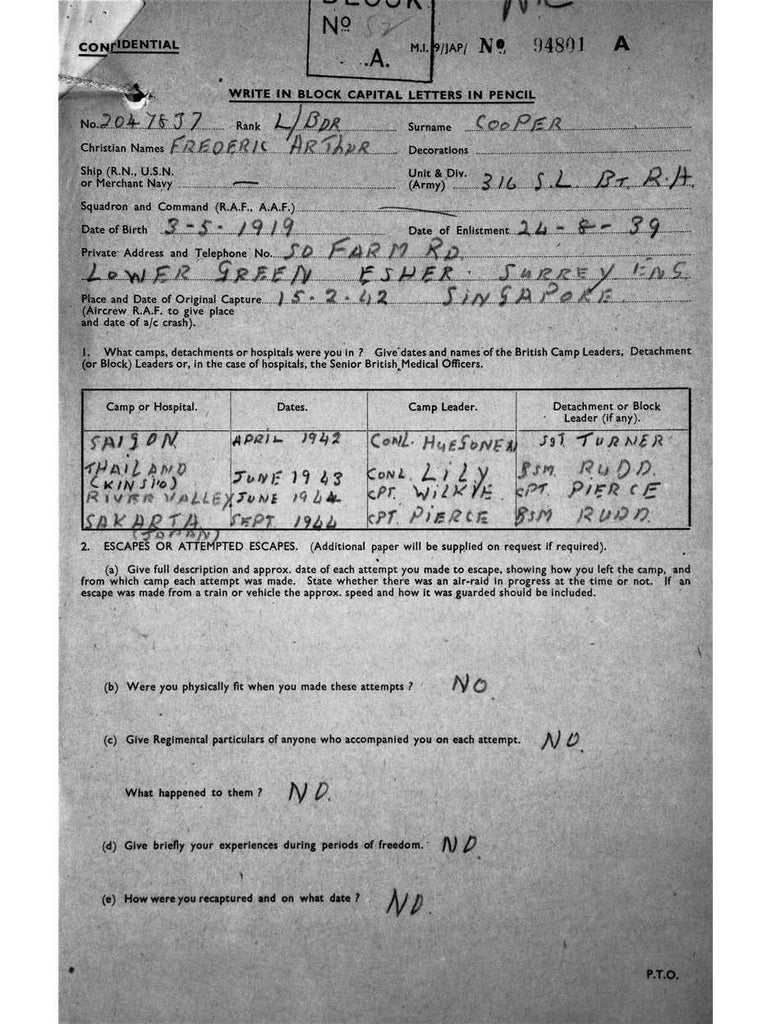 BLOCK
No 52
A.
CONFIDENTIAL
M.I. 9/JAP/ No. 94801 A
WRITE IN BLOCK CAPITAL LETTERS IN PENCIL
No. 2047837 Rank L/BDR Surname COOPER
Christian Names FREDERIC ARTHUR Decorations
Ship (R.N., U.S.N. or Merchant Navy — Unit & Div. (Army) 316 S.L. BT. R.A.
Squadron and Command (R.A.F., A.A.F.)
Date of Birth 3-5-1919 Date of Enlistment 24-8-39
Private Address and Telephone No. 50 FARM RD.
LOWER GREEN ESHER. SURREY ENG
Place and Date of Original Capture 15.2.42 SINGAPORE.
(Aircrew R.A.F. to give place
and date of a/c crash).
1. What camps, detachments or hospitals were you in ? Give dates and names of the British Camp Leaders, Detachment
(or Block) Leaders or, in the case of hospitals, the Senior British Medical Officers.
Camp or Hospital. Dates. Camp Leader. Detachment or Block Leader (if any).
SAIGON APRIL 1942 CONL. SGT TURNER
THAILAND (KINSIIO) JUNE 1943 CONL. LILY BSM. RUDD.
RIVER VALLEY JUNE 1944 CPT. WILKIE. CPT. PIERCE
SAKARTA (JAPAN) SEPT. 1944 CPT. PIERCE BSM RUDD.
2. ESCAPES OR ATTEMPTED ESCAPES. (Additional paper will be supplied on request if required).
(a) Give full description and approx. date of each attempt you made to escape, showing how you left the camp, and
from which camp each attempt was made. State whether there was an air-raid in progress at the time or not. If an
escape was made from a train or vehicle the approx. speed and how it was guarded should be included.
(b) Were you physically fit when you made these attempts ? NO
(c) Give Regimental particulars of anyone who accompanied you on each attempt. NO.
What happened to them ? NO.
(d) Give briefly your experiences during periods of freedom. NO
(e) How were you recaptured and on what date ? NO.
P.T.O.